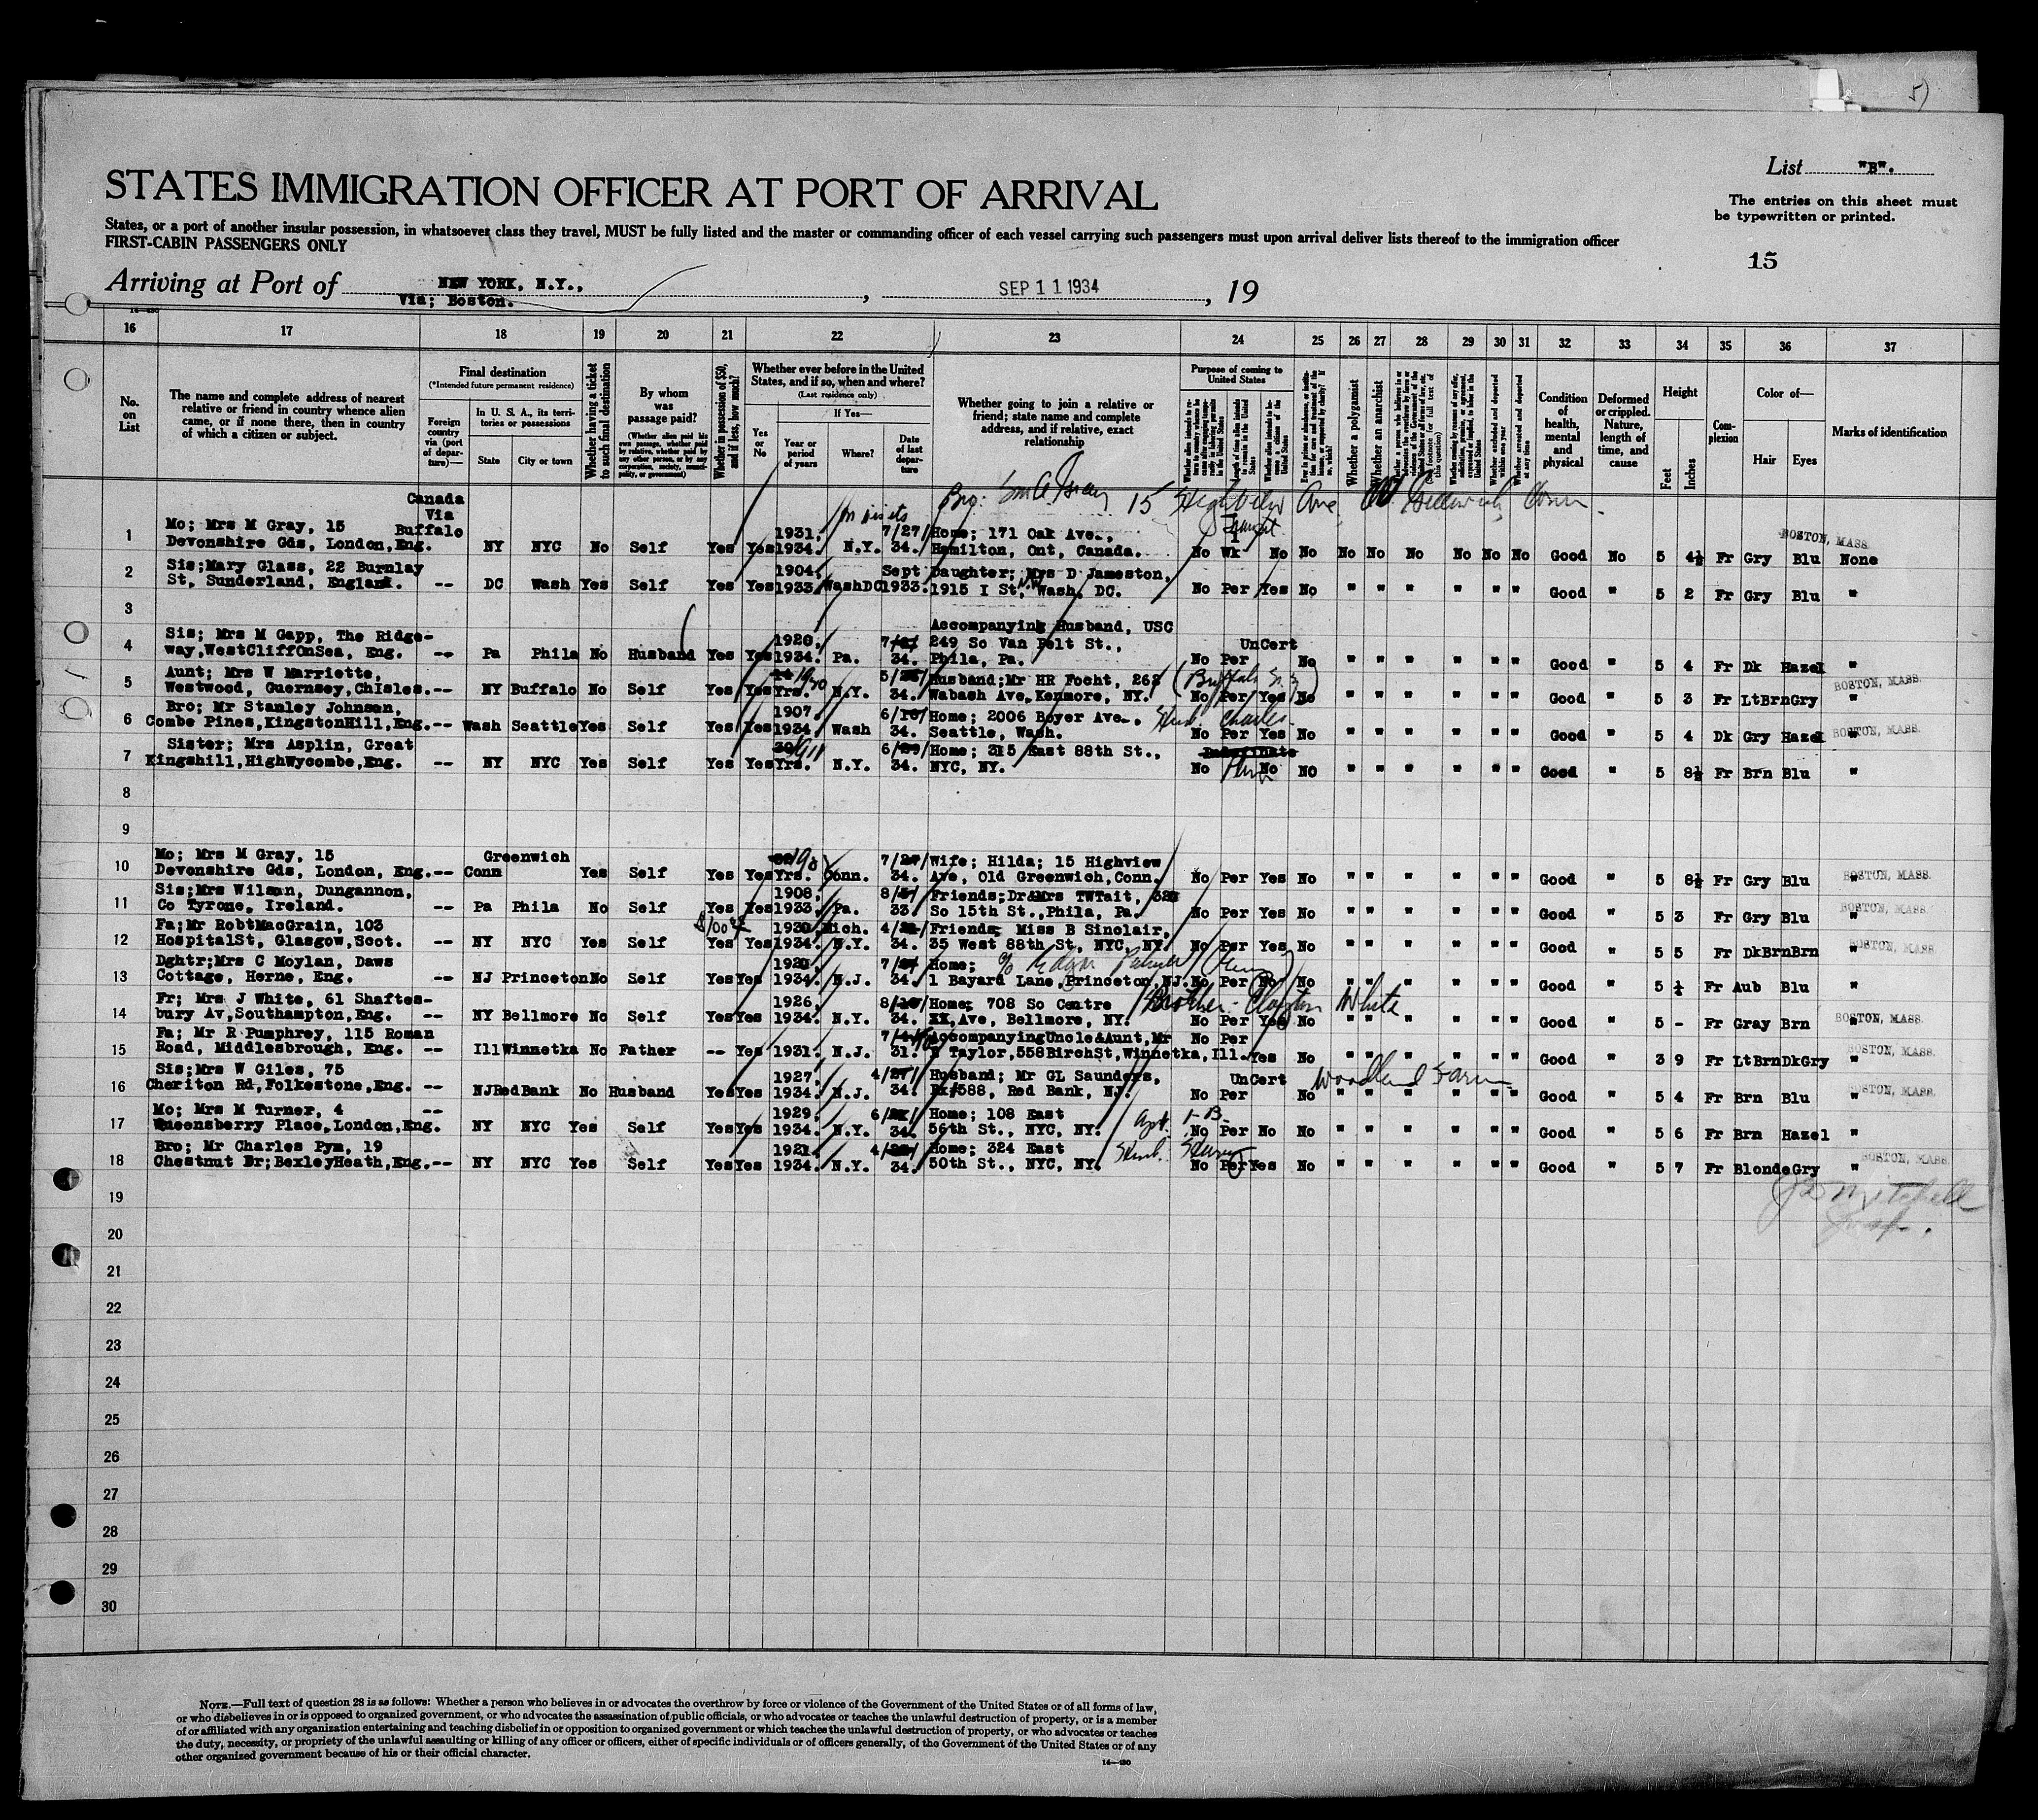 5)
List "B".
STATES IMMIGRATION OFFICER AT PORT OF ARRIVAL
The entries on this sheet must
be typewritten or printed.
States, or a port of another insular possession, in whatsoever class they travel, MUST be fully listed and the master or commanding officer of each vessel carrying such passengers must upon arrival deliver lists thereof to the immigration officer
FIRST-CABIN PASSENGERS ONLY
15
Arriving at Port of NEW YORK, N.Y., , SEP 11 1934 , 19
Via; Boston.
16 17 18 19 20 21 22 23 24 25 26 27 28 29 30 31 32 33 34 35 36 37
No. on List
The name and complete address of nearest relative or friend in country whence alien came, or if none there, then in country of which a citizen or subject.
Final destination
(*Intended future permanent residence)
Foreign country via (port of departure)—
In U. S. A., its territories or possessions
State City or town
Whether having a ticket to such final destination
By whom was passage paid?
(Whether alien paid his own passage, whether paid by relative, whether paid by any other person, or by any corporation, society, municipality, or government)
Whether in possession of $50, and if less, how much?
Whether ever before in the United States, and if so, when and where?
(Last residence only)
Yes or No
If Yes—
Year or period of years
Where?
Date of last departure
Whether going to join a relative or friend; state name and complete address, and if relative, exact relationship
Purpose of coming to United States
Whether a polygamist
Whether an anarchist
Condition of health, mental and physical
Deformed or crippled. Nature, length of time, and cause
Height
Feet Inches
Complexion
Color of—
Hair Eyes
Marks of identification
Bro: 15 Highview Ave Old Greenwich, Conn.
Canada
Via
Buffalo
1 Mo; Mrs M Gray, 15 1931, 7/27/ Home; 171 Oak Ave., Transit BOSTON, MASS.
Devonshire Gds, London, Eng. NY NYC No Self Yes Yes 1934. N.Y. 34. Hamilton, Ont, Canada. No 1 Wk No No No No No No No No Good No 5 4½ Fr Gry Blu None
2 Sis;Mary Glass, 22 Burnley 1904, Sept Daughter; Mrs D Jameston,
St, Sunderland, England. -- DC Wash Yes Self Yes Yes 1933 WashDC 1933. 1915 I St, NW Wash, DC. No Per Yes No " " " " " " Good " 5 2 Fr Gry Blu "
3
Accompanying Husband, USC
4 Sis; Mrs M Gapp, The Ridge- 1920, 249 So Van Pelt St., UnCert
way,WestCliffOnSea, Eng. -- Pa Phila No Husband Yes Yes 1934. Pa. 34. Phila, Pa. No Per No " " " " " " Good " 5 4 Fr Dk Hazel "
5 Aunt; Mrs W Marriette, Husband;Mr HR Focht, 262 (Buffalo N.Y.) BOSTON, MASS.
Westwood, Guernsey,ChIsles. -- NY Buffalo No Self Yes Yes Yrs. N.Y. 34. Wabash Ave,Kenmore, NY. No Per Yes No " " " " " " Good " 5 3 Fr LtBrnGry "
6 Bro; Mr Stanley Johnson, 1907, Home; 2006 Boyer Ave., Husb. Charles. BOSTON, MASS.
Combe Pines,KingstonHill,Eng. -- Wash Seattle Yes Self Yes Yes 1934 Wash 34. Seattle, Wash. No Per Yes No " " " " " " Good " 5 4 Dk Gry Hazel "
7 Sister; Mrs Asplin, Great Home; 315 East 88th St., Indefinate
Kingshill,HighWycombe,Eng. -- NY NYC Yes Self Yes Yes Yrs. N.Y. 34. NYC, NY. No Perm No NO " " " " " " Good " 5 8½ Fr Brn Blu "
8
9
10 Mo; Mrs M Gray, 15 Greenwich 7/27/ Wife; Hilda; 15 Highview
Devonshire Gds, London, Eng. -- Conn Yes Self Yes Yes Yrs. Conn. 34. Ave, Old Greenwich,Conn. No Per Yes No " " " " " " Good " 5 8½ Fr Gry Blu " BOSTON, MASS.
11 Sis;Mrs Wilson, Dungannon, 1908, Friends;Dr&Mrs TWTait, BOSTON, MASS.
Co Tyrone, Ireland. -- Pa Phila No Self Yes Yes 1933, Pa. 33. So 15th St.,Phila, Pa. No Per Yes No " " " " " " Good " 5 3 Fr Gry Blu "
12 Fa;Mr RobtMacGrain, 103 $100 1930 Mich. Friends; Miss B Sinclair,
HospitalSt, Glasgow,Scot. -- NY NYC Yes Self Yes Yes 1934. N.Y. 34. 35 West 88th St, NYC, NY. No Per Yes No " " " " " " Good " 5 5 Fr DkBrnBrn " BOSTON, MASS
13 Dghtr;Mrs C Moylan, Daws Home; c/o Edgar Palmer
Cottage, Herne, Eng. -- NJ Princeton No Self Yes Yes 1934. N.J. 34. 1 Bayard Lane,Princeton,NJ. No Per No No " " " " " " Good " 5 ½ Fr Aub Blu "
14 Fr; Mrs J White, 61 Shaftes- 1926, Home; 708 So Centre Brother- Clayton White
bury Av,Southampton,Eng. -- NY Bellmore No Self Yes Yes 1934. N.Y. 34. XX,Ave, Bellmore, NY. No Per Yes No " " " " " " Good " 5 - Fr Gray Brn " BOSTON, MASS.
15 Fa; Mr R Pumphrey, 115 Roman AccompanyingUncle&Aunt,Mr No Per BOSTON, MASS.
Road, Middlesbrough, Eng. -- Ill Winnetka No Father -- Yes 1931. N.J. 31. Taylor,558BirchSt,Winnetka,Ill. Yes No " " " " " " Good " 3 9 Fr LtBrnDkGry "
16 Sis;Mrs W Giles, 75 1927, 4/27/ Husband; Mr GL Saunders, UnCert Woodland Farm
Cheriton Rd,Folkestone,Eng. -- NJ RedBank No Husband Yes Yes 1934. N.J. 34. Bx 588, Red Bank, NJ. No Per No " " " " " " Good " 5 4 Fr Brn Blu " BOSTON, MASS.
17 Mo; Mrs M Turner, 4 -- 1929, Home; 108 East Apt. 1-B.
Queensberry Place,London,Eng. NY NYC Yes Self Yes Yes 1934. N.Y. 34. 56th St., NYC, NY. No Per No No " " " " " " Good " 5 6 Fr Brn Hazel "
18 Bro; Mr Charles Pym, 19 1921, Home; 324 East Husb. BOSTON, MASS.
Chestnut Dr;BexleyHeath,Eng. -- NY NYC Yes Self Yes Yes 1934. N.Y. 34. 50th St., NYC, NY. No Per Yes No " " " " " " Good " 5 7 Fr BlondeGry "
19 Mitchell
20 Insp.
21
22
23
24
25
26
27
28
29
30
NOTE.—Full text of question 28 is as follows: Whether a person who believes in or advocates the overthrow by force or violence of the Government of the United States or of all forms of law,
or who disbelieves in or is opposed to organized government, or who advocates the assassination of public officials, or who advocates or teaches the unlawful destruction of property, or is a member
of or affiliated with any organization entertaining and teaching disbelief in or opposition to organized government or which teaches the unlawful destruction of property, or who advocates or teaches
the duty, necessity, or propriety of the unlawful assaulting or killing of any officer or officers, either of specific individuals or of officers generally, of the Government of the United States or of any
other organized government because of his or their official character.